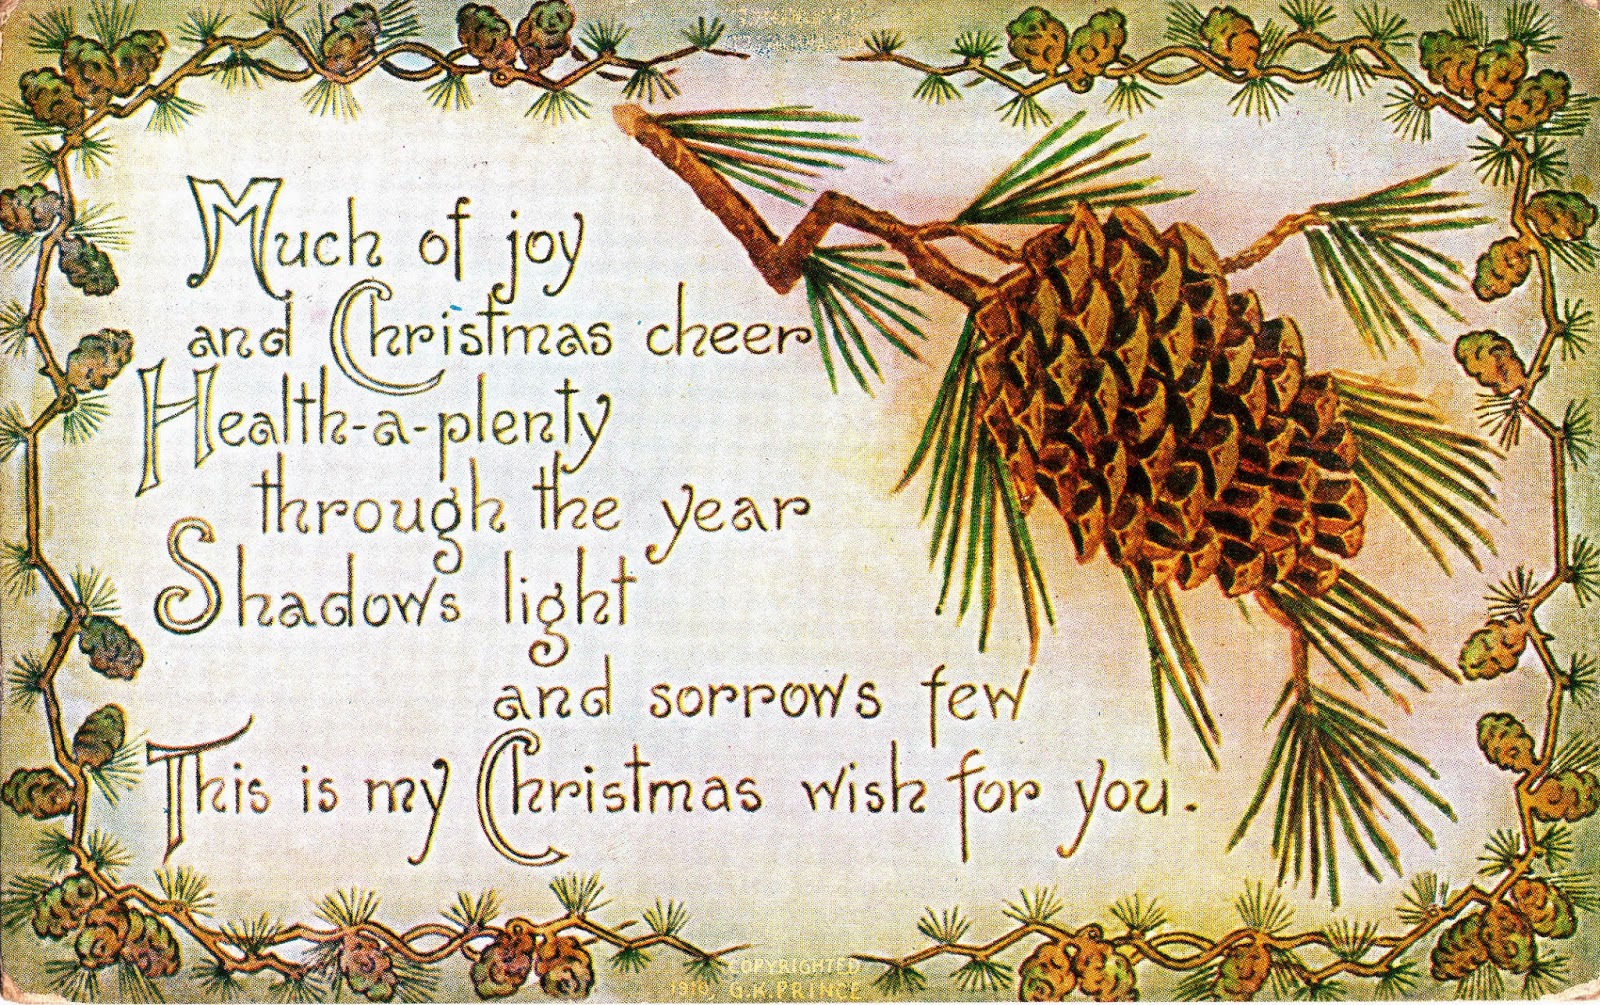 Much of joy
and Christmas cheer
Health-a-plenty
through the year
Shadows light
and sorrows few
This is my Christmas wish for you.
COPYRIGHTED
1910 G.K.PRINCE